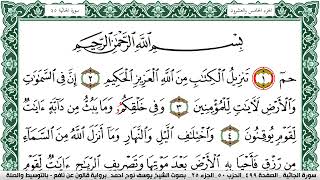 الجزء الخامس والعشرون سورة الجاثية ٤٥
بِسْمِ اللَّهِ الرَّحْمَٰنِ الرَّحِيمِ
حمٓ ١ تَنزِيلُ الْكِتَٰبِ مِنَ اللَّهِ الْعَزِيزِ الْحَكِيمِ ٢ إِنَّ فِي السَّمَٰوَٰتِ
وَالْأَرْضِ لَأٓيَٰتٍ لِّلْمُؤْمِنِينَ ٣ وَفِي خَلْقِكُمْ وَمَا يَبُثُّ مِن دَآبَّةٍ ءَايَٰتٌ
لِّقَوْمٍ يُوقِنُونَ ٤ وَاخْتِلَٰفِ الَّيْلِ وَالنَّهَارِ وَمَآ أَنزَلَ اللَّهُ مِنَ السَّمَآءِ
مِن رِّزْقٍ فَأَحْيَا بِهِ الْأَرْضَ بَعْدَ مَوْتِهَا وَتَصْرِيفِ الرِّيَٰحِ ءَايَٰتٌ لِّقَوْمٍ
سورة الجاثية الصفحة ٤٩٩ الحزب ٥٠ الجزء ٢٥ بصوت الشيخ يوسف نوح احمد برواية قالون عن نافع - بالتوسيط والصلة